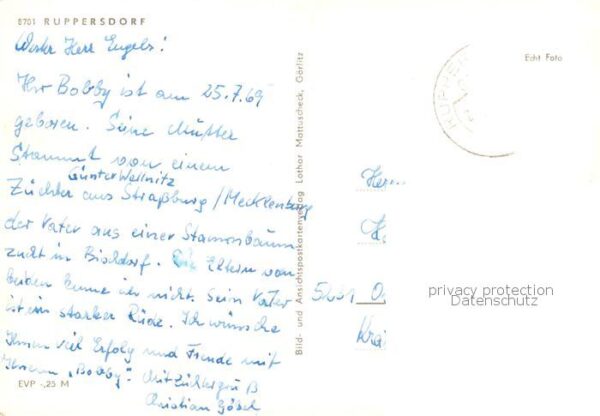 8701 RUPPERSDORF
Werter Herr Engels!
Ihr Bobby ist am 25.7.69
geboren. Seine Mutter
stammt von einem
Günter Wellnitz
Züchter aus Straßburg/Mecklenburg
der Vater aus einer Stammbaum
zucht in Bischdorf. Die Eltern von
beiden kenne ich nicht. Sein Vater
ist ein starker Rüde. Ich wünsche
Ihnen viel Erfolg und Freude mit
Ihrem „Bobby". Mit Züchtergruß
Christian Göbel
EVP -,25 M
Bild- und Ansichtspostkartenverlag Lothar Mattuscheck, Görlitz
Echt Foto
Herrn
privacy protection
Datenschutz